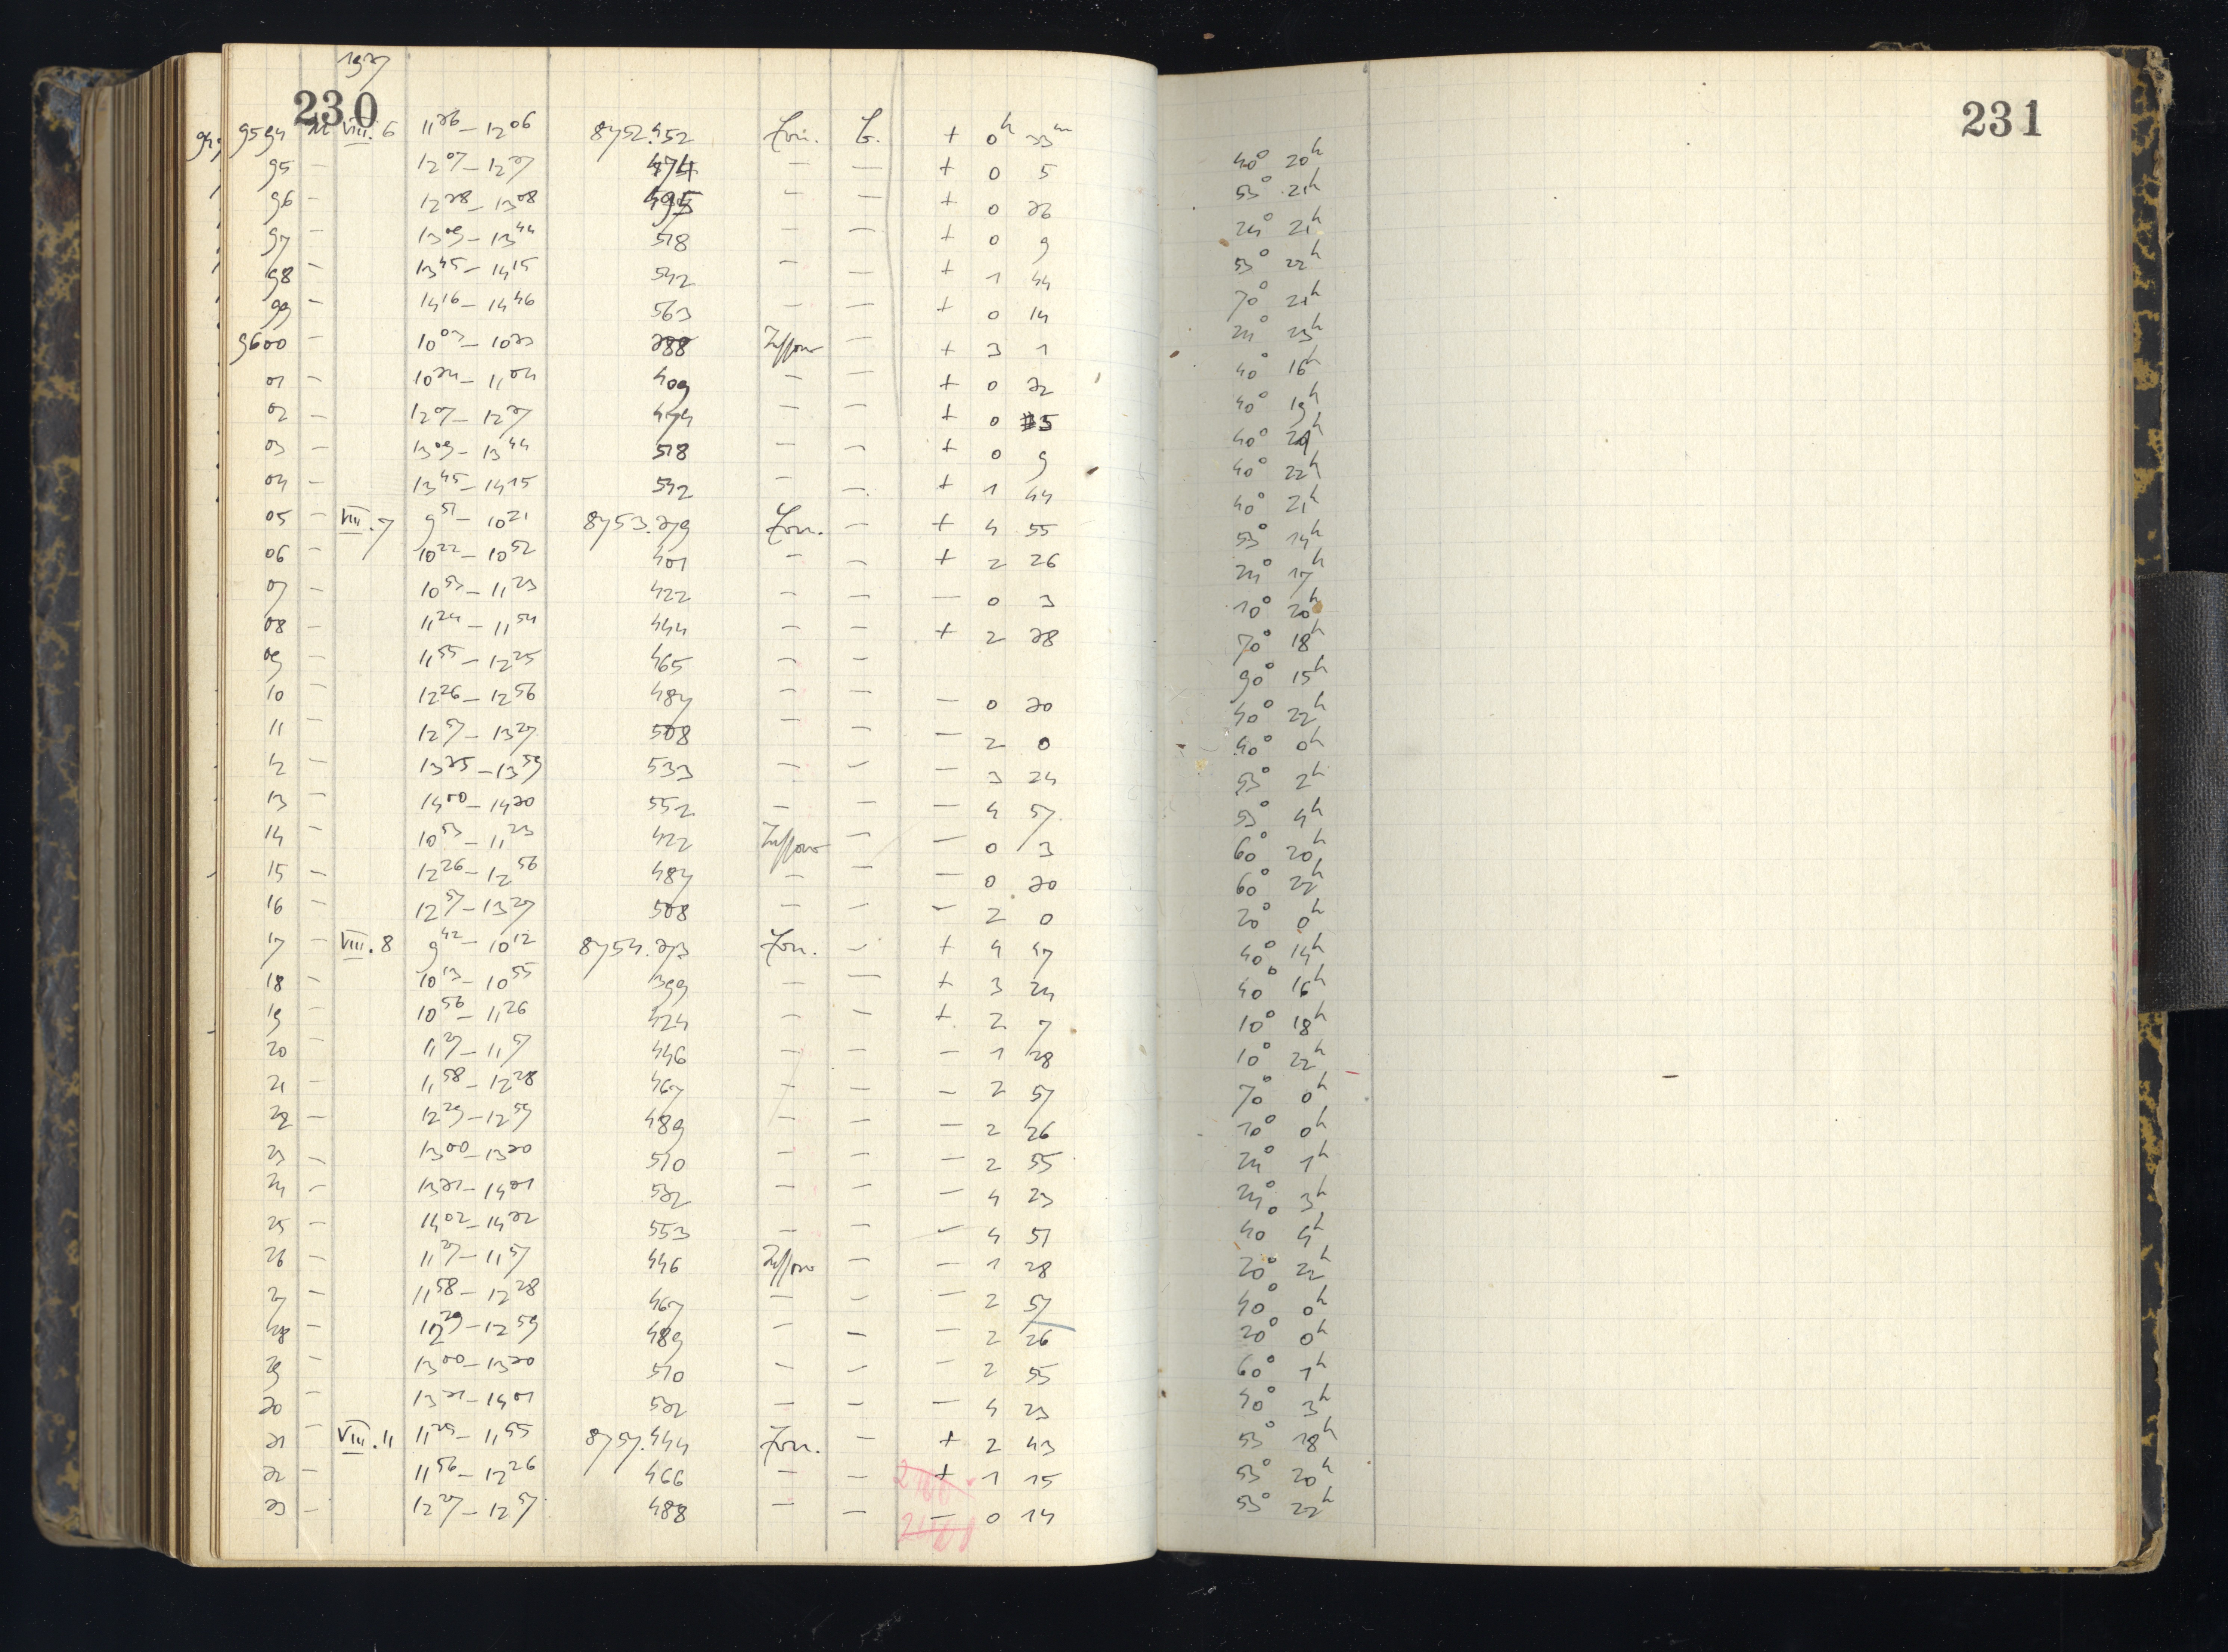 1927
230
9594 M VIII. 6 11 26 – 12 06 8752.452 + 0h 33m
95 – 12 07 – 12 37 474 — — + 0 5
96 – 12 38 – 13 08 495 – — + 0 26
97 – 13 09 – 13 44 518 – — + 0 9
98 – 13 45 – 14 15 542 – — + 1 44
99 – 14 16 – 14 46 563 – — + 0 14
9600 – 10 03 – 10 33 388 – + 3 1
01 – 10 34 – 11 04 409 – — + 0 32
02 – 12 07 – 12 37 474 – — + 0 5
03 – 13 09 – 13 44 518 – – + 0 9
04 – 13 45 – 14 15 542 – – + 1 44
05 – VIII. 7 9 51 – 10 21 8753.379 – + 4 55
06 – 10 22 – 10 52 401 – – + 2 26
07 – 10 53 – 11 23 422 – – — 0 3
08 – 11 24 – 11 54 444 – – + 2 28
09 – 11 55 – 12 25 465 – –
10 – 12 26 – 12 56 487 – – — 0 30
11 – 12 57 – 13 27 508 – – — 2 0
12 – 13 35 – 13 59 533 – – — 3 24
13 – 14 00 – 14 30 552 – – — 4 57
14 – 10 53 – 11 23 422 – — 0 3
15 – 12 26 – 12 56 487 – – — 0 30
16 – 12 57 – 13 27 508 – – – 2 0
17 – VIII. 8 9 42 – 10 12 8754.373 – + 4 47
18 – 10 13 – 10 55 399 – — + 3 24
19 – 10 56 – 11 26 424 – – + 2 7
20 – 11 27 – 11 57 446 – – – 1 28
21 – 11 58 – 12 28 467 – – – 2 57
22 – 12 29 – 12 59 489 – – – 2 26
23 – 13 00 – 13 30 510 – – — 2 55
24 – 13 31 – 14 01 532 – – – 4 23
25 – 14 02 – 14 32 553 – – – 4 51
26 – 11 27 – 11 57 446 – – 1 28
27 – 11 58 – 12 28 467 – – — 2 57
28 – 12 29 – 12 59 489 – – — 2 26
29 – 13 00 – 13 30 510 – – – 2 55
30 – 13 31 – 14 01 532 – – — 4 23
31 – VIII. 11 11 25 – 11 55 8757.444 – + 2 43
32 – 11 56 – 12 26 466 – – + 1 15
33 – 12 27 – 12 57 488 – — — 0 14
231
40° 20h
53° 21h
24° 21h
53° 22h
70° 21h
24° 23h
40° 16h
40° 19h
40° 21h
40° 22h
40° 21h
53° 14h
24° 17h
10° 20h
70° 18h
90° 15h
40° 22h
40° 0h
53° 2h
53° 4h
60° 20h
60° 22h
20° 0h
40° 14h
40° 16h
10° 18h
10° 22h
70° 0h
10° 0h
24° 1h
24° 3h
40° 4h
20° 22h
40° 0h
20° 0h
60° 1h
40° 3h
53° 18h
53° 20h
53° 22h